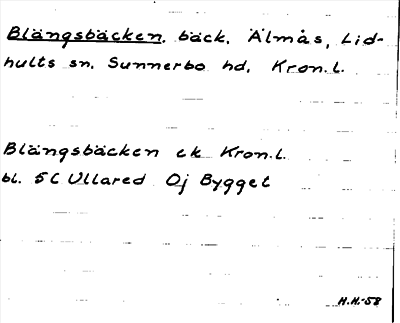 Blängsbäcken. bäck. Älmås, Lid-
hults sn. Sunnerbo hd. Kron.l.
Blängsbäcken ek Kron.l.
bl. 5C Ullared Oj Bygget
H.H.-58